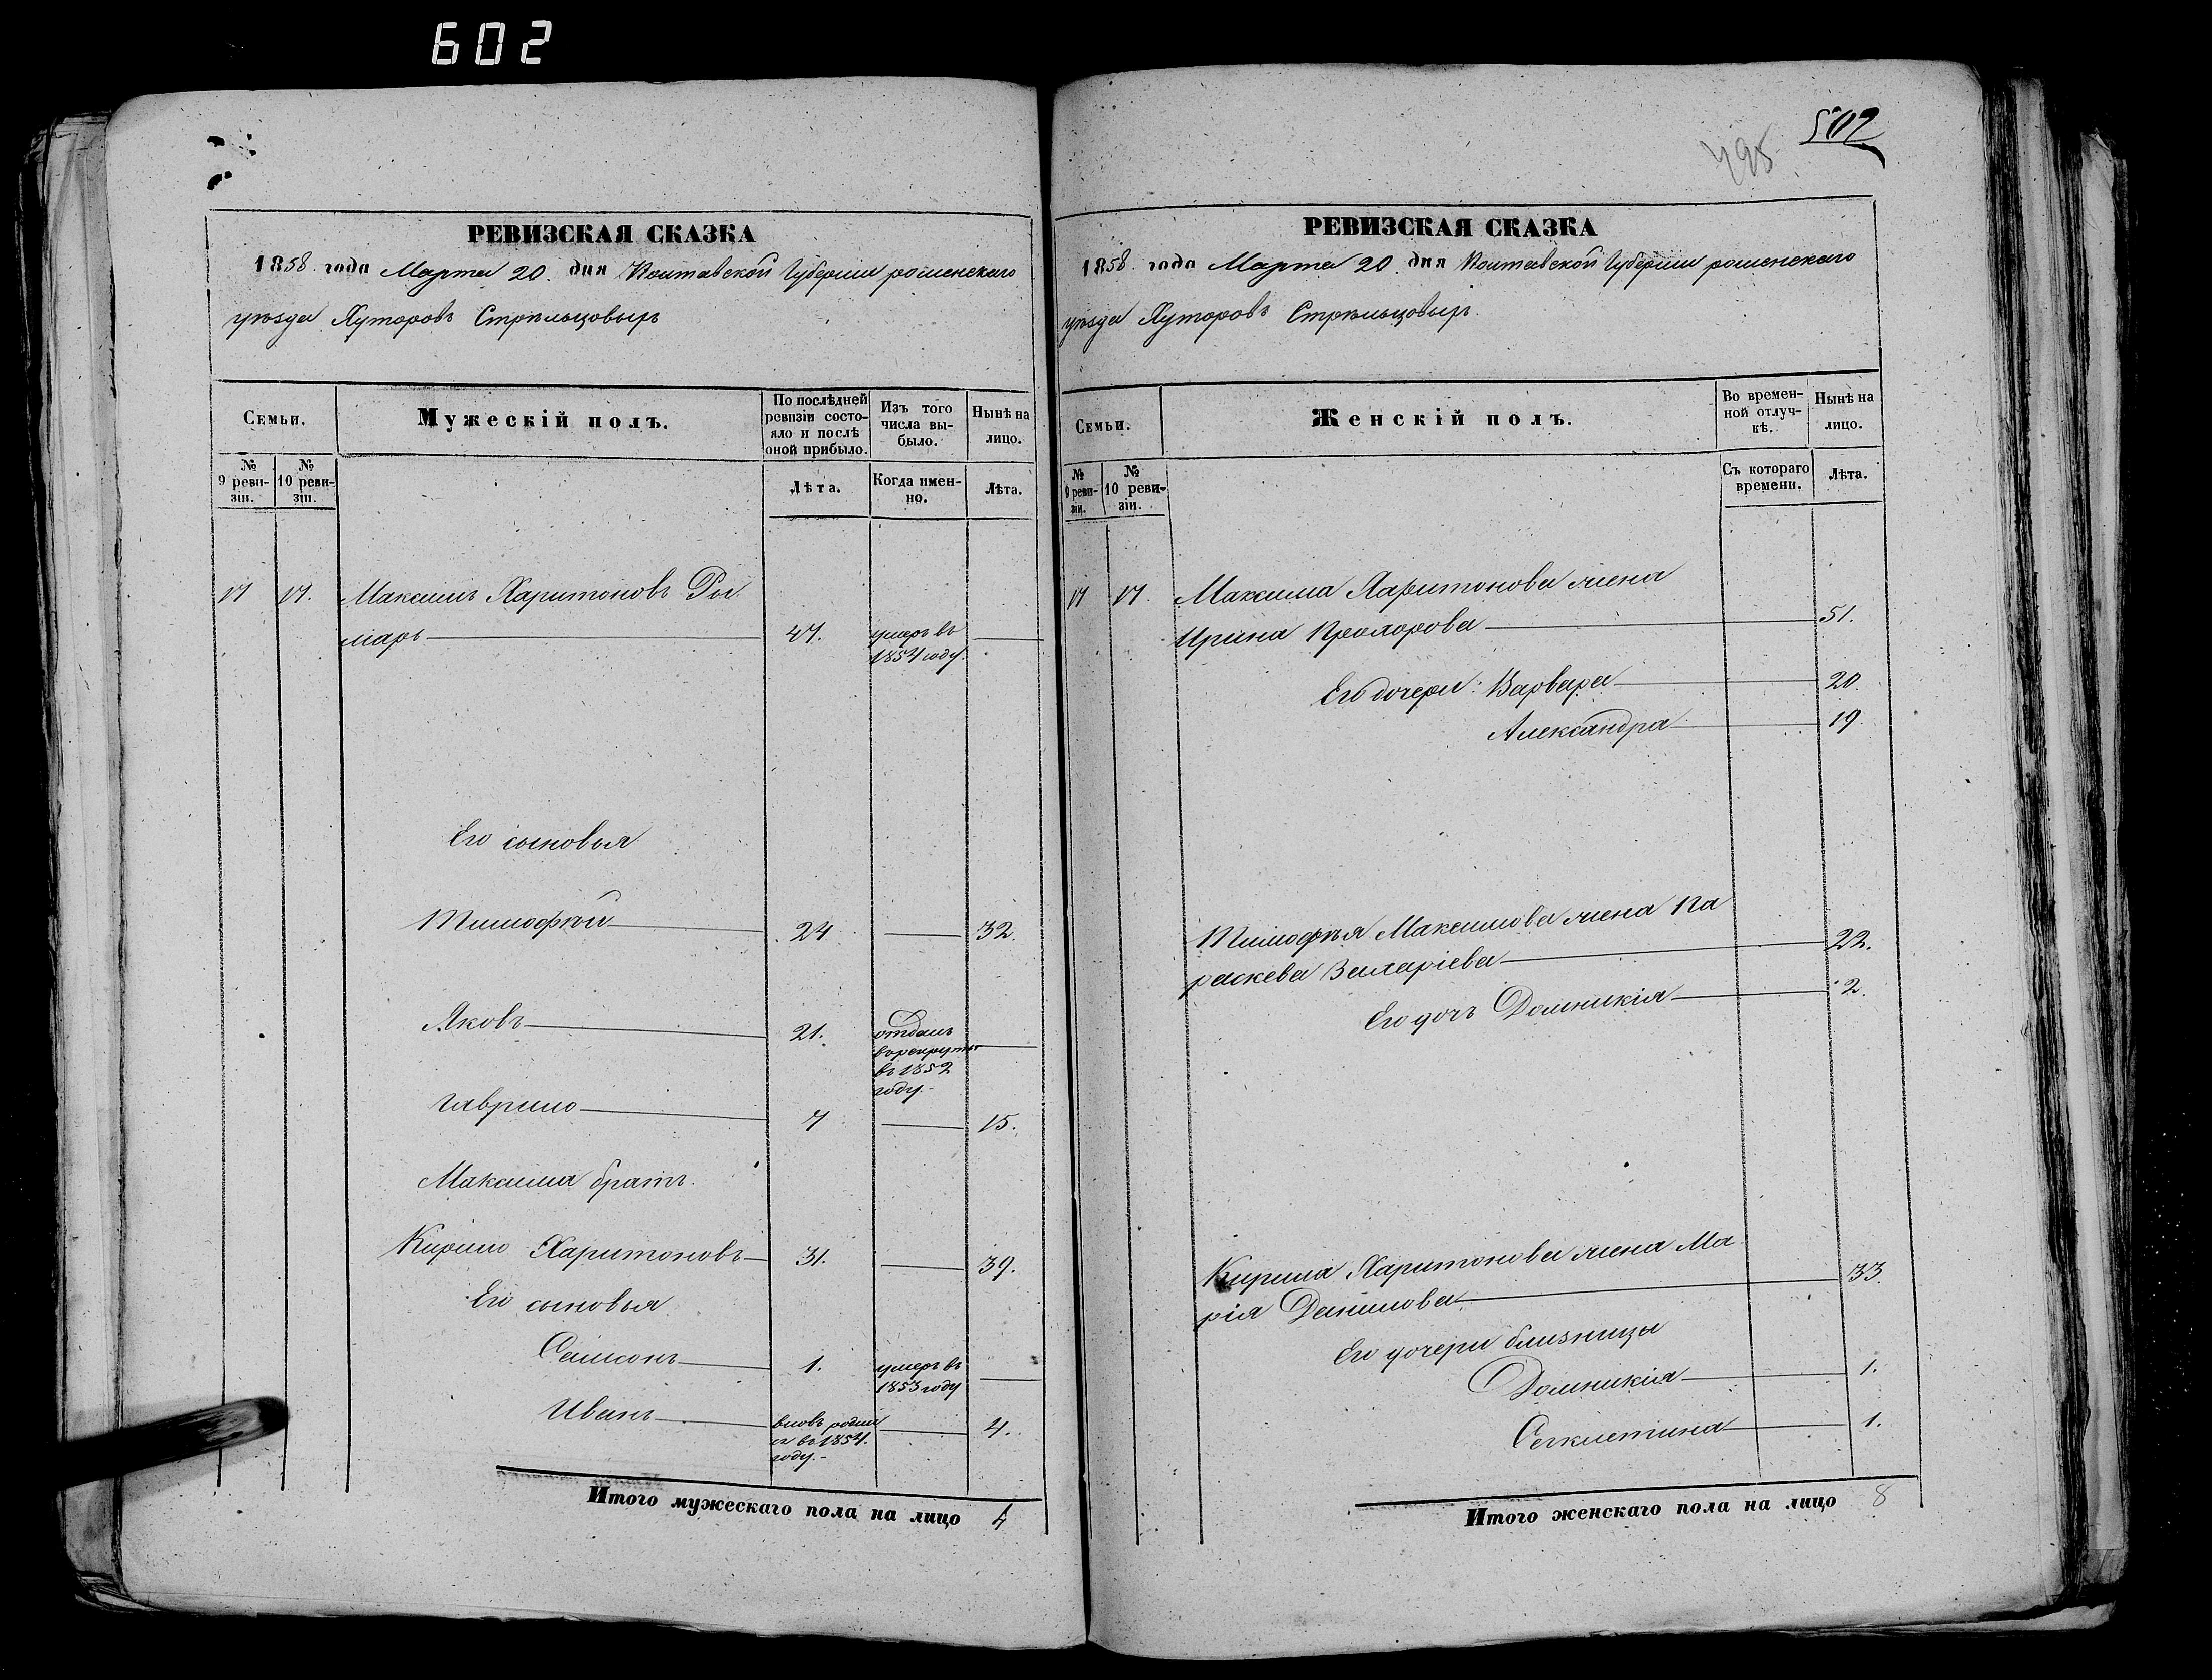 602
РЕВИЗСКАЯ СКАЗКА
1858 года Марта 20 дня Полтавской Губернии роменскаго
уѣзда Хуторовъ Стрѣльцовыхъ
Семьи.
Мужескій полъ.
По послѣдней ревизіи состояло и послѣ оной прибыло.
Изъ того числа выбыло.
Нынѣ на лицо.
№ 9 ревизіи.
№ 10 ревизіи.
Лѣта.
Когда именно.
Лѣта.
17 17. Максимъ Харитоновъ
47. умеръ въ
1854 году.
Его сыновья
Тимофѣй 24 32.
Яковъ 21. отданъ
въ рекруты
въ 1852
году.
Гаврило 7 15.
Максима братъ.
Кирило Харитоновъ 31. 39.
Его сыновья
Самсонъ 1. умеръ въ
1853 году
Иванъ вновь родил
ся въ 1854. 4.
году.
Итого мужескаго пола на лицо 4
502
495
РЕВИЗСКАЯ СКАЗКА
1858 года Марта 20 дня Полтавской Губернии роменскаго
уѣзда Хуторовъ Стрѣльцовыхъ
Семьи.
Женскій полъ.
Во временной отлучкѣ.
Нынѣ на лицо.
№ 9 ревизіи.
№ 10 ревизіи.
Съ котораго времени.
Лѣта.
17 17. Максима Харитонова жена
Ирина Прохорова 51.
Его дочери: Варвара 20
Александра 19
Тимофѣя Максимова жена Па
раскева Захаріева 22.
Его дочь Домникія 2.
Кирила Харитонова жена Ма
рія Данилова 33.
Его дочери близницы
Домникія 1.
1.
Итого женскаго пола на лицо 8